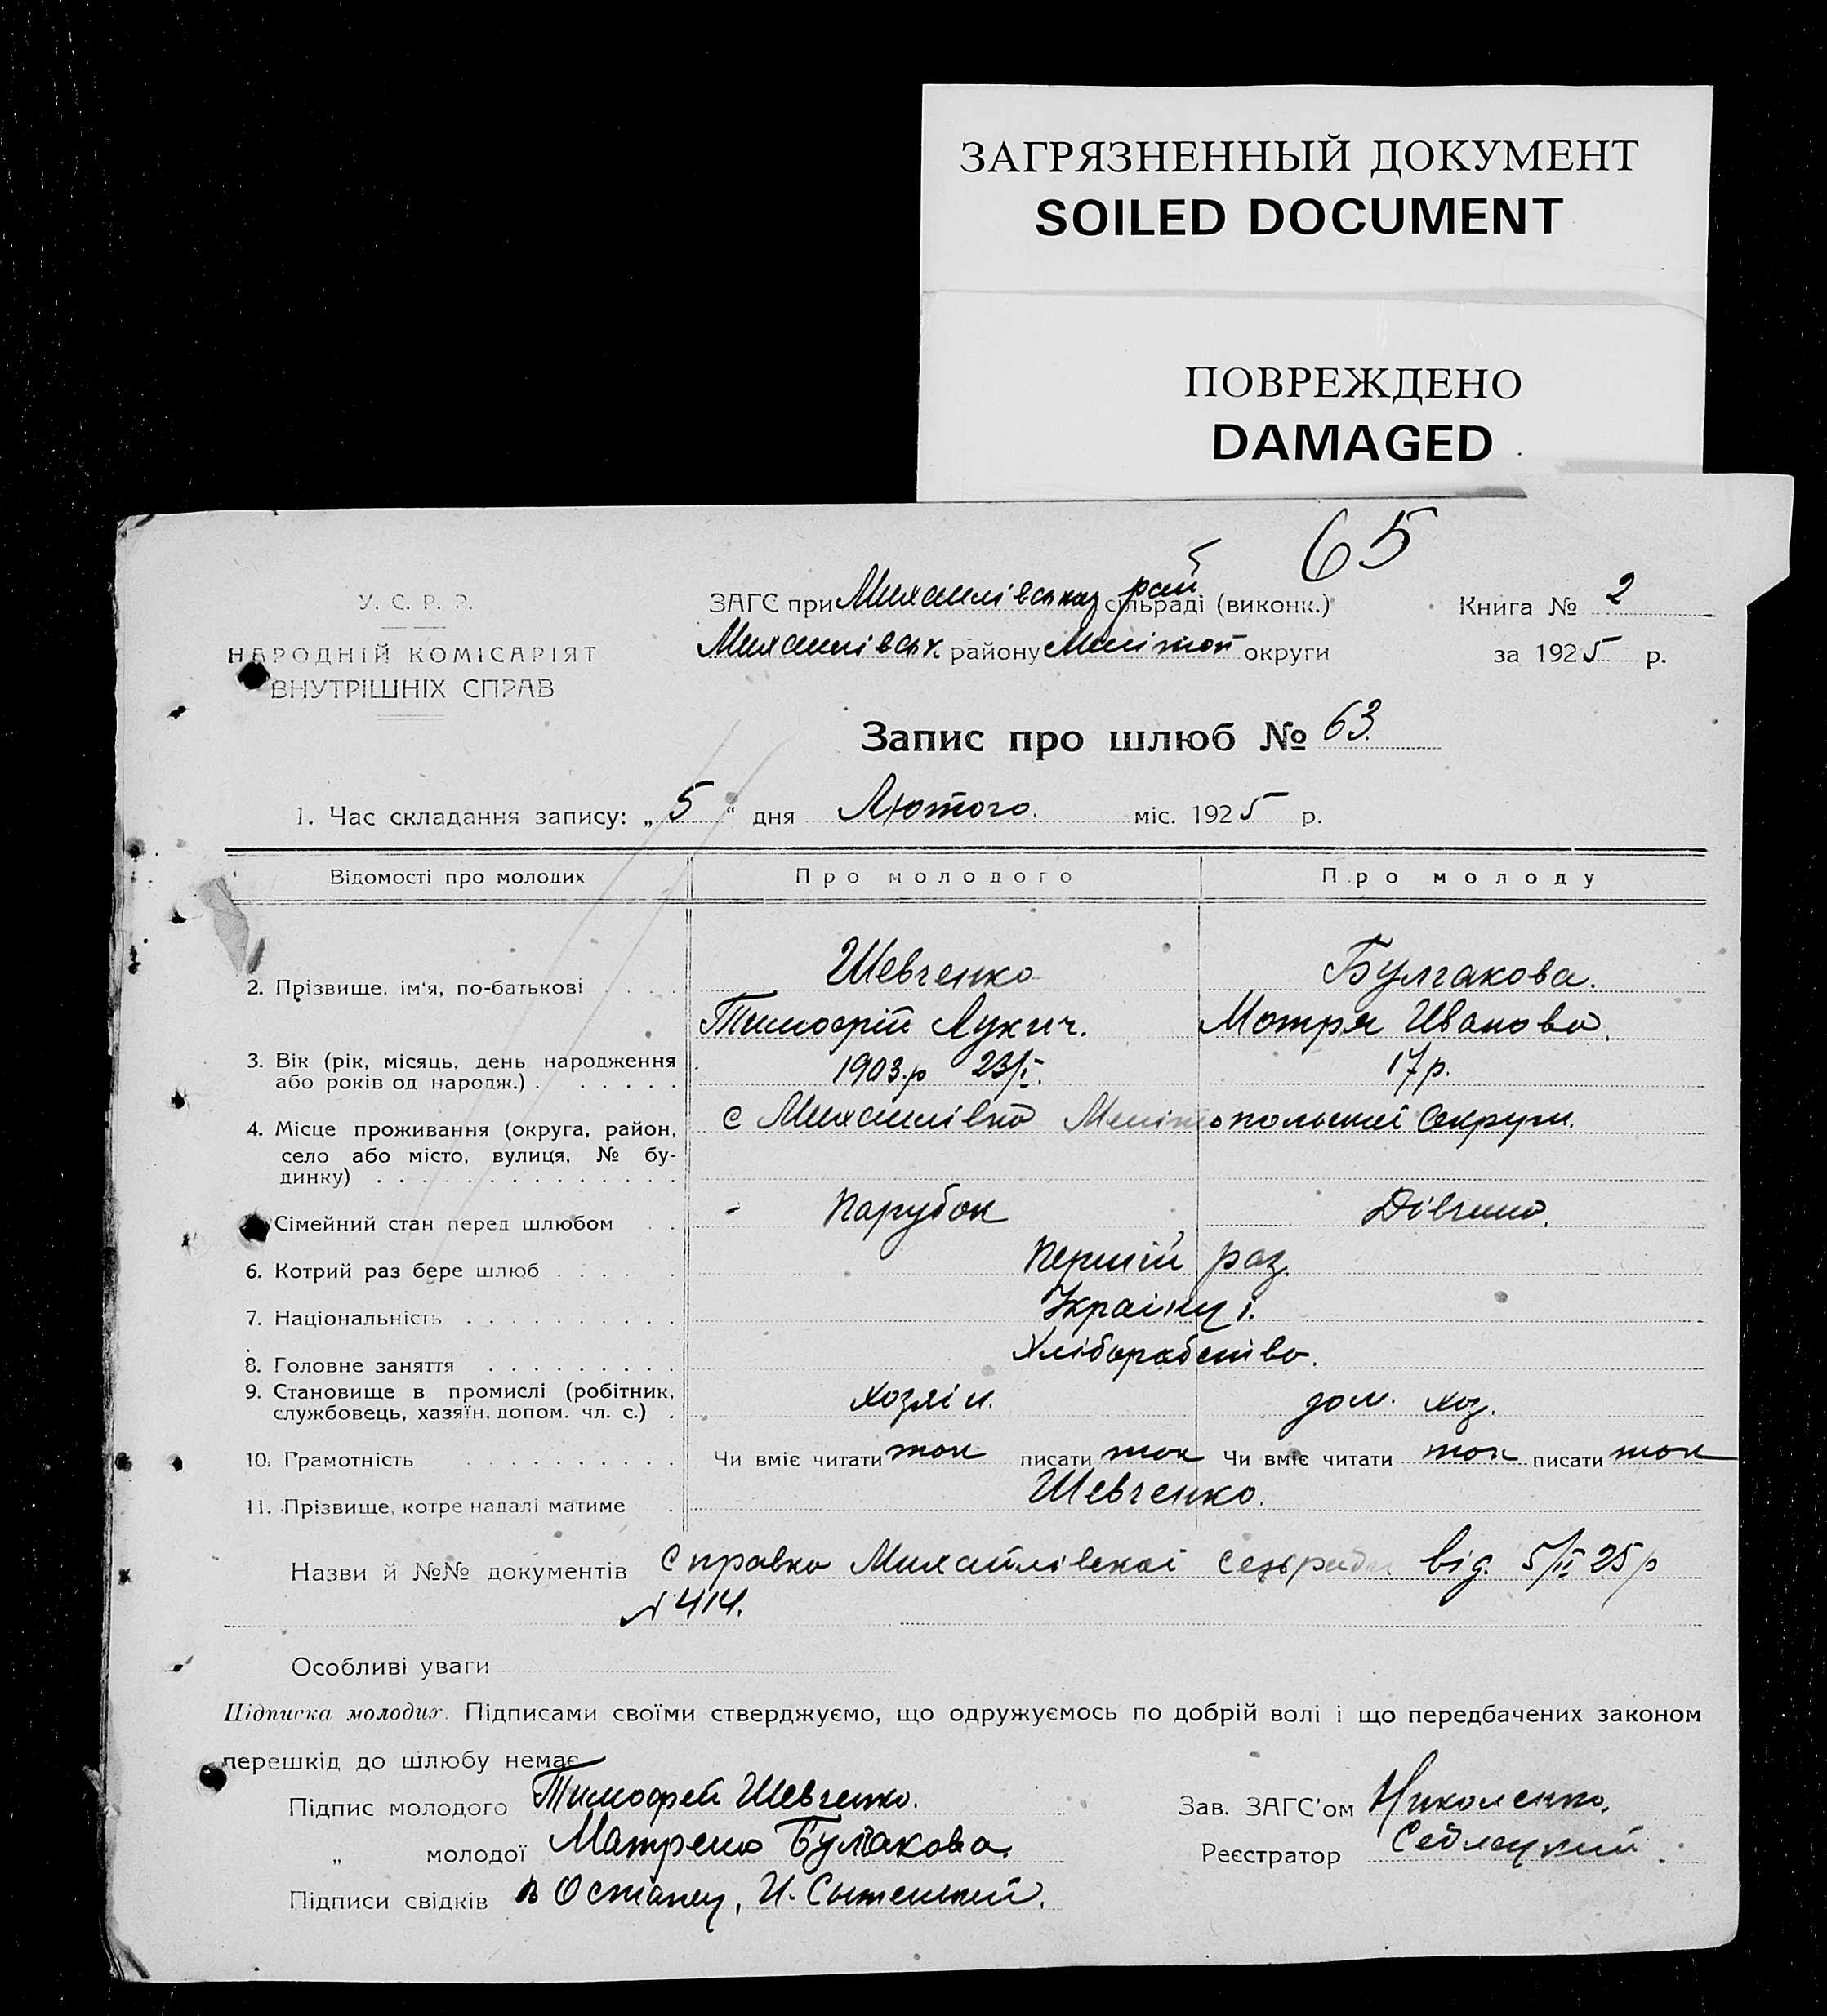 ЗАГРЯЗНЕННЫЙ ДОКУМЕНТ
SOILED DOCUMENT
ПОВРЕЖДЕНО
DAMAGED
65
У. С. Р. Р.
НАРОДНІЙ КОМІСАРІЯТ
ВНУТРІШНІХ СПРАВ
ЗАГС при Михайлівськ рай сільраді (виконк.)
Михайлівськ. району Мелітоп округи
Книга № 2
за 1925 р.
Запис про шлюб № 63.
1. Час складання запису: „ 5 “ дня Лютого. міс. 1925 р.
Відомості про молодих Про молодого Про молоду
Шевченко Булгакова.
2. Прізвище, ім'я, по-батькові
Тимофій Лукич. Мотря Иванова.
3. Вік (рік, місяць, день народження 1903.р 23/I. 17 р.
або років од нарадж.)
4. Місце проживання (округа, район, с Михайлівка Мелітопольскої Округи.
село або місто, вулиця, № бу-
динку)
Сімейний стан перед шлюбом Парубок Дівчина.
6. Котрий раз бере шлюб Перший раз.
7. Національність Украінці.
8. Головне заняття Хліборобство.
9. Становище в промислі (робітник, хозяін. дом. хоз.
службовець, хазяїн, допом. чл. с.)
10. Грамотність Чи вміє читати так писати так Чи вміє читати так писати так
11. Прізвище, котре надалі матиме Шевченко.
Назви й №№ документів Справка Михайлівскоі сельради від. 5/II 25 р
№ 414.
Особливі уваги
Підписка молодих. Підписами своїми стверджуємо, що одружуємось по добрій волі і що передбачених законом
перешкід до шлюбу немає
Підпис молодого Тимофей Шевченко. Зав. ЗАГС'ом Николенко.
„ молодої Матрена Булгакова. Реєстратор
Підписи свідків Остапец, И.